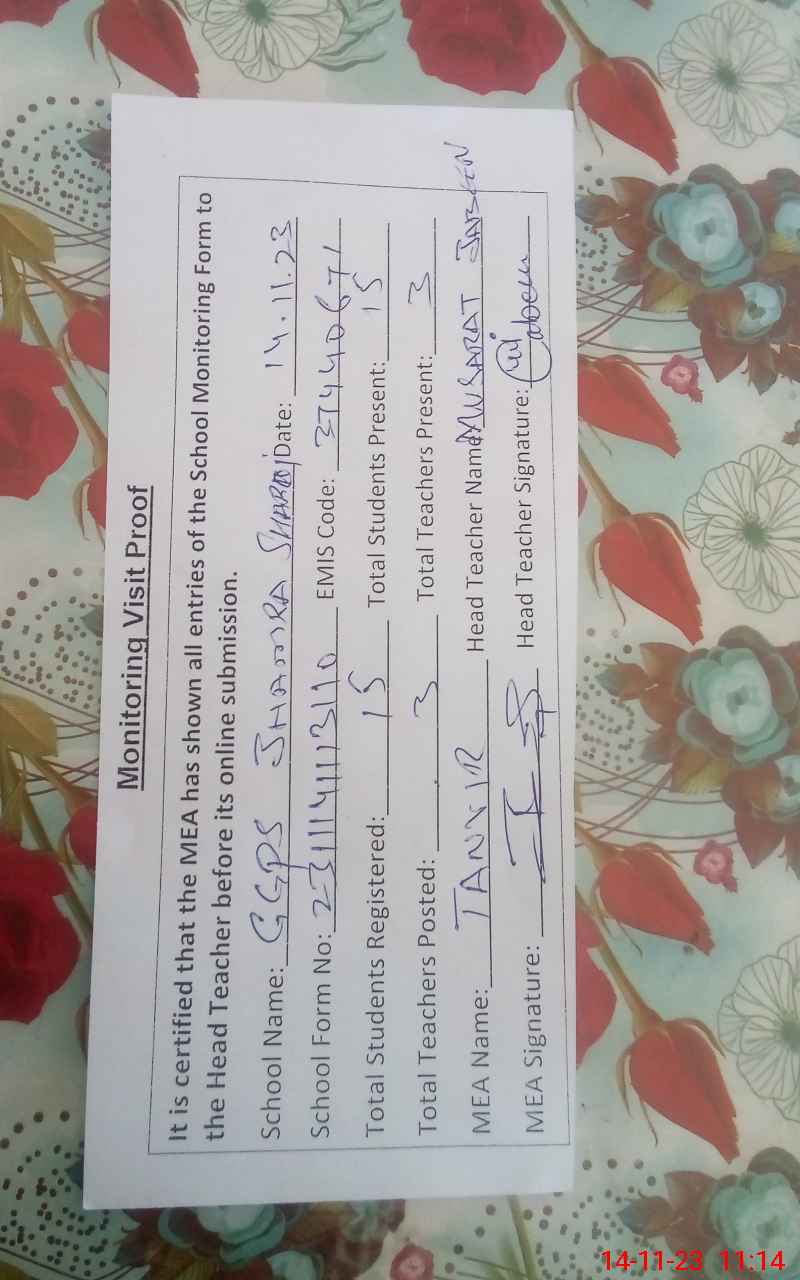 Monitoring Visit Proof
It is certified that the MEA has shown all entries of the School Monitoring Form to
the Head Teacher before its online submission.
School Name: GGPS JHAMRA SHARQI Date: 14.11.23
School Form No: 2311141113110 EMIS Code: 37440671
Total Students Registered: 15 Total Students Present: 15
Total Teachers Posted: 3 Total Teachers Present: 3
MEA Name: TANVIR Head Teacher Name: MUSARAT JABEEN
MEA Signature: Head Teacher Signature:
14-11-23 11:14